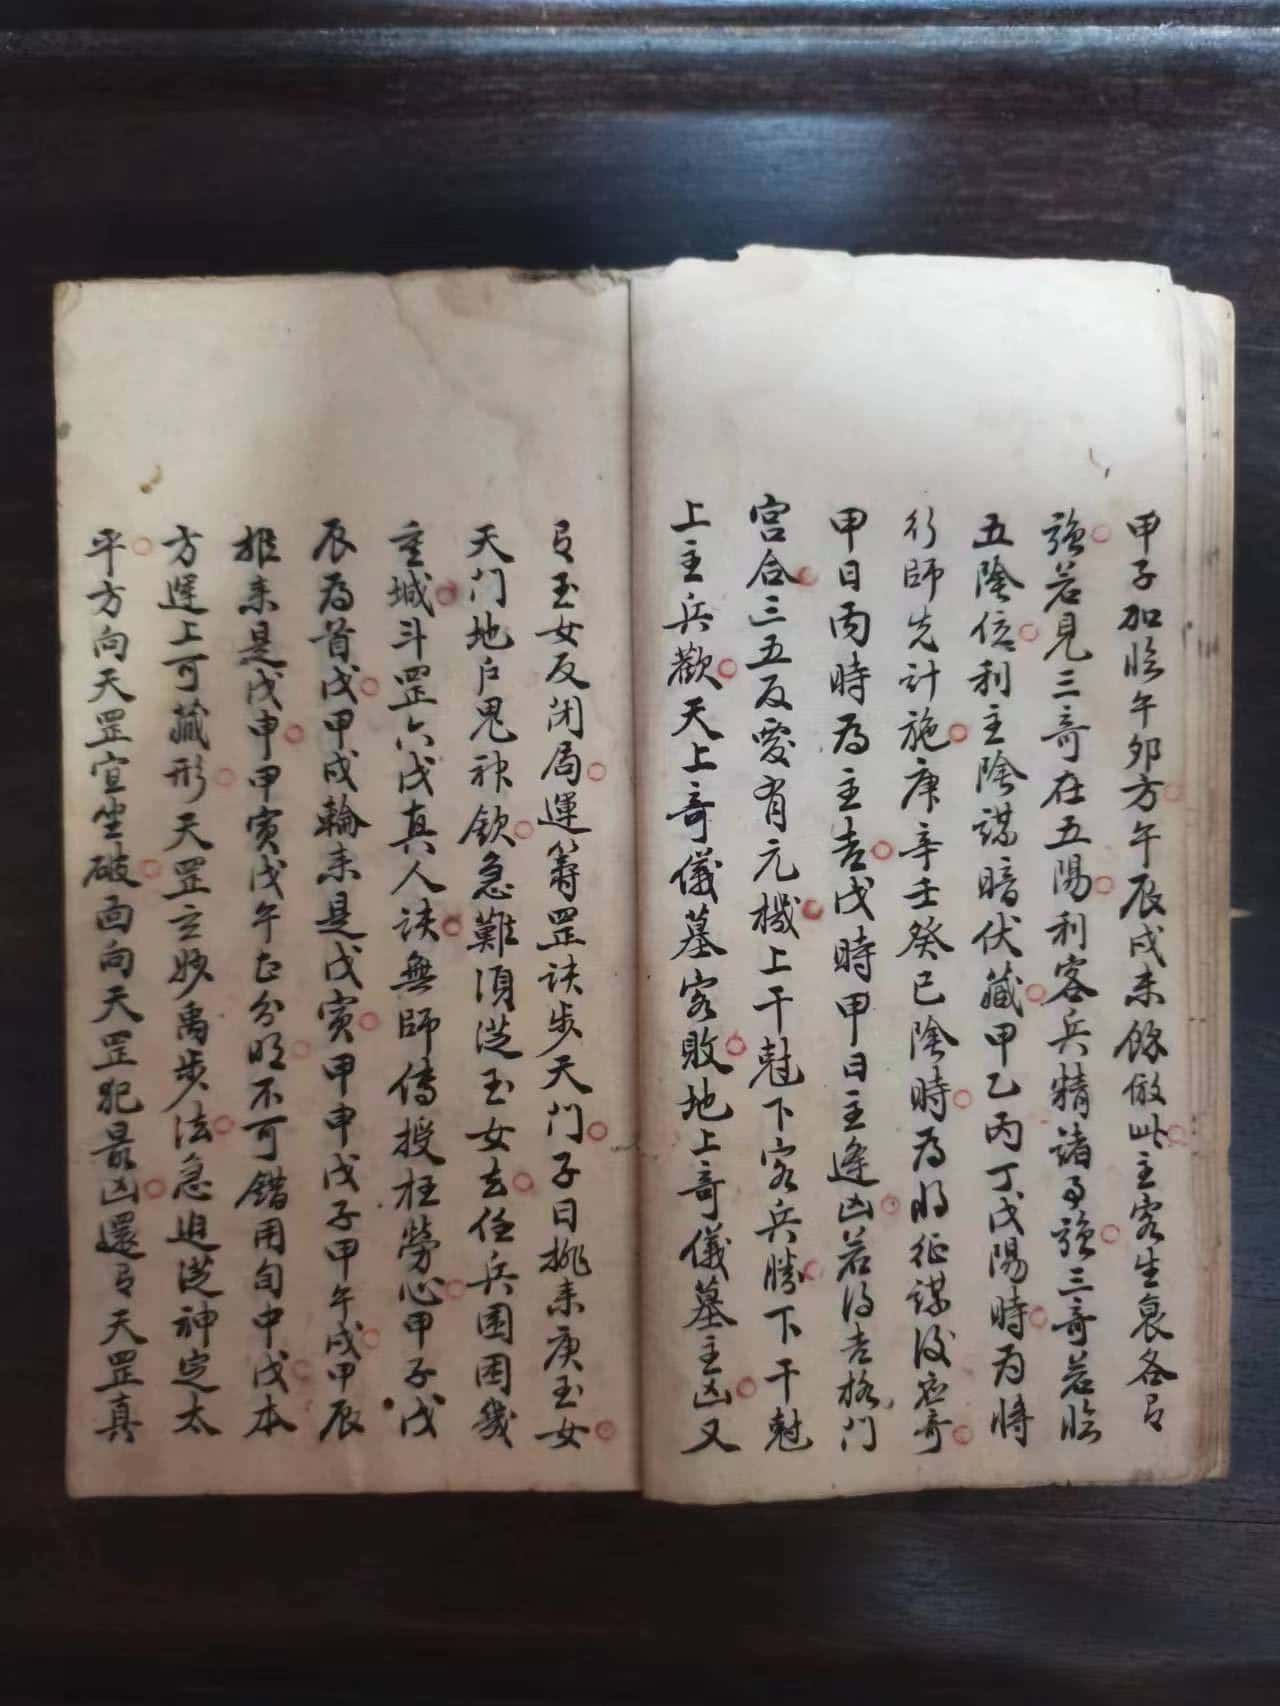 甲子加臨午卯方午辰戌未餘倣此主客生衰各有
強若見三奇在五陽利客兵精諸事強三奇若臨
五陰位利主陰謀暗伏藏甲乙丙丁戊陽時為將
行師先計施庚辛壬癸已陰時為將征謀後應奇
甲日丙時為主吉戊時甲日主逢凶若得吉格門
宮合三五反爱有元機上干尅下客兵勝下干尅
上主兵歡天上奇儀墓客敗地上奇儀墓主凶又
有玉女反闭局運籌罡訣步天門子日挑来庚玉女
天门地户鬼神欽急難須從玉女去任兵围困幾
重城斗罡六戊真人訣無師傳授枉勞心甲子戊
辰為首戊甲戌輪来是戊寅甲申戊子甲午戌甲辰
推来是戊申甲寅戊午正分明不可錯用旬中戊本
方遲上可藏形天罡立妙禹步法急追從神定太
平方向天罡宜坐破面向天罡犯最凶還有天罡真